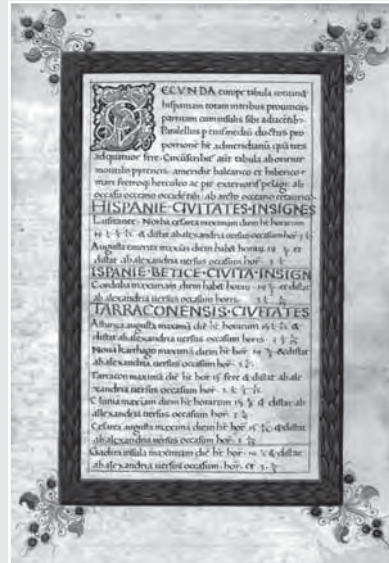 SECVNDA europe tabula continet
hispaniam totam in tribus prouinciis
partium cum insulis sibi adiacentib.
Parallelus p eius medium ductus pro
portionē hē ad meridianū quā tres
ad quatuor fere. Circūscribit aūt tabula ab oriente
montib pyreneis. a meridie balearico et hiberico
mari fretroq herculeo ac pte exterioris pelagi ab
occasu occeano occidētali ab arcto occeano
HISPANIE·CIVITATES·INSIGNES
Lusitanie Norba cesarea maximum diem hē horarum
& distat ab alexandria uersus occasum hor
Augusta emerita maxim diem habet horar et
distat ab alexandria uersus occasum hor
ISPANIE·BETICE·CIVITA·INSIGN
Corduba maximam diem habet horar et distat
ab alexandria uersus occasum horis
TARRACONENSIS·CIVITATES
Asturica augusta maximā diē hē horarum &
distat ab alexandria uersus occasum horis
Noua karthago maximā diem hē hor & distat
ab alexandria uersus occasum hor
Tarracon maximā diē hē hor 15 fere & distat ab ale
xandria uersus occasum hor
Clunia maximam diem hē horarum & distat ab
alexandria uersus occasum hor
Cesarea augusta maximā diem hē hor & distat
ab alexandria uersus occasum hor
Gadira insula maximam diē hē hor & distat
ab alexandria uersus occasum hor